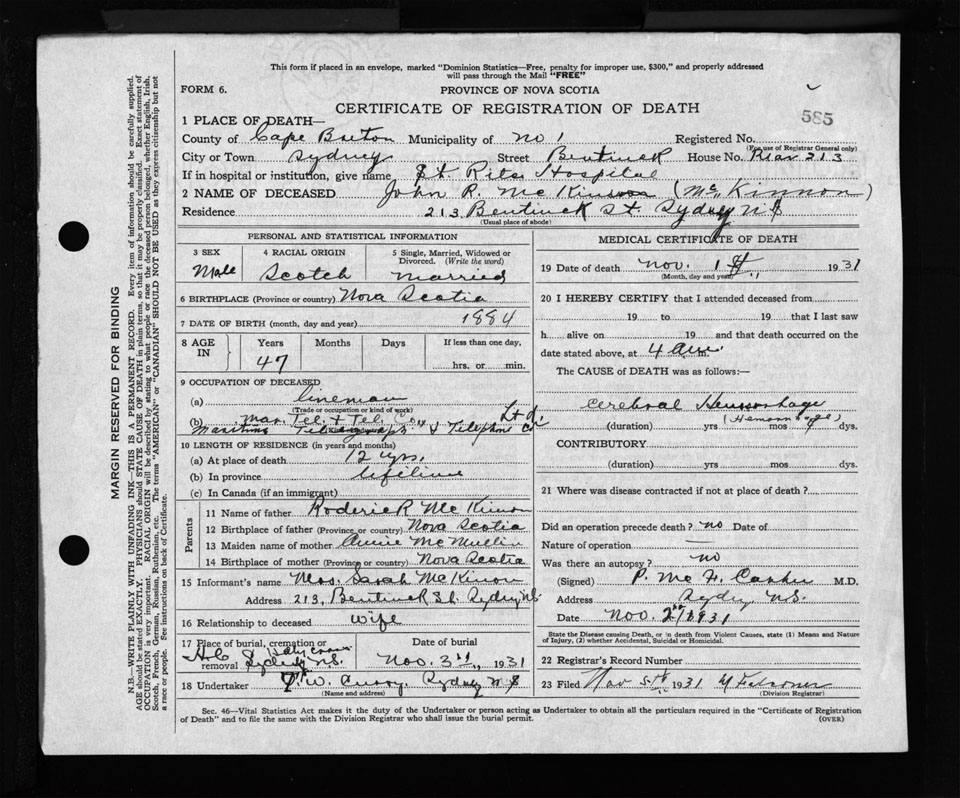 This form if placed in an envelope, marked "Dominion Statistics—Free, penalty for improper use, $300," and properly addressed
will pass through the Mail "FREE"
FORM 6.
PROVINCE OF NOVA SCOTIA
585
CERTIFICATE OF REGISTRATION OF DEATH
1 PLACE OF DEATH—
County of Cape Breton Municipality of no 1 Registered No.
(For use of Registrar General only)
City or Town Sydney Street Bentinck House No. 213
If in hospital or institution, give name St Rita Hospital
2 NAME OF DECEASED John R. McKinnon (McKinnon)
Residence 213 Bentinck St. Sydney NS
(Usual place of abode)
PERSONAL AND STATISTICAL INFORMATION
3 SEX Male
4 RACIAL ORIGIN Scotch
5 Single, Married, Widowed or Divorced. (Write the word) married
6 BIRTHPLACE (Province or country) Nova Scotia
7 DATE OF BIRTH (month, day and year) 1884
8 AGE IN Years 47 Months Days If less than one day, hrs. or min.
9 OCCUPATION OF DECEASED
(a) lineman
(Trade or occupation or kind of work)
(b) Mar. Tel. & Tel. Co Ltd.
Maritime & Telephone Co
10 LENGTH OF RESIDENCE (in years and months)
(a) At place of death 12 yrs.
(b) In province lifetime
(c) In Canada (if an immigrant)
Parents
11 Name of father Roderick McKinnon
12 Birthplace of father (Province or country) Nova Scotia
13 Maiden name of mother Annie McMullin
14 Birthplace of mother (Province or country) Nova Scotia
15 Informant's name Mrs. Sarah McKinon
Address 213, Bentinck St. Sydney NS.
16 Relationship to deceased wife
17 Place of burial, cremation or removal Holy Cross Sydney NS.
Date of burial Nov. 3rd, 1931
18 Undertaker W. Sydney NS
(Name and address)
MEDICAL CERTIFICATE OF DEATH
19 Date of death Nov. 1st, 1931
(Month, day and year)
20 I HEREBY CERTIFY that I attended deceased from
19 to 19 that I last saw
h alive on 19 and that death occurred on
date stated above, at 4 am.
The CAUSE of DEATH was as follows:—
Cerebral Hemorrhage
(Hemorrhage)
(duration) yrs mos dys.
CONTRIBUTORY
(duration) yrs mos dys.
21 Where was disease contracted if not at place of death?
Did an operation precede death? no Date of
Nature of operation —
Was there an autopsy? no
(Signed) P. Mc F. M.D.
Address Sydney NS.
Date Nov. 2nd/1931
State the Disease causing Death, or in death from Violent Causes, state (1) Means and Nature
of Injury, (2) whether Accidental, Suicidal or Homicidal.
22 Registrar's Record Number
23 Filed Nov 5th 1931
(Division Registrar)
Sec. 46—Vital Statistics Act makes it the duty of the Undertaker or person acting as Undertaker to obtain all the particulars required in the "Certificate of Registration
of Death" and to file the same with the Division Registrar who shall issue the burial permit.
(OVER)
MARGIN RESERVED FOR BINDING
N.B.—WRITE PLAINLY WITH UNFADING INK—THIS IS A PERMANENT RECORD. Every item of information should be carefully supplied.
AGE should be stated EXACTLY. PHYSICIANS should STATE CAUSE OF DEATH in plain terms, so that it may be properly classified. Exact statement of
OCCUPATION is very important. RACIAL ORIGIN will be described by stating to what people or race the deceased person belonged, whether English, Irish,
Scotch, French, German, Russian, Ruthenian, etc. The terms "AMERICAN" or "CANADIAN" SHOULD NOT BE USED as they express citizenship but not
a race or people. See instructions on back of Certificate.